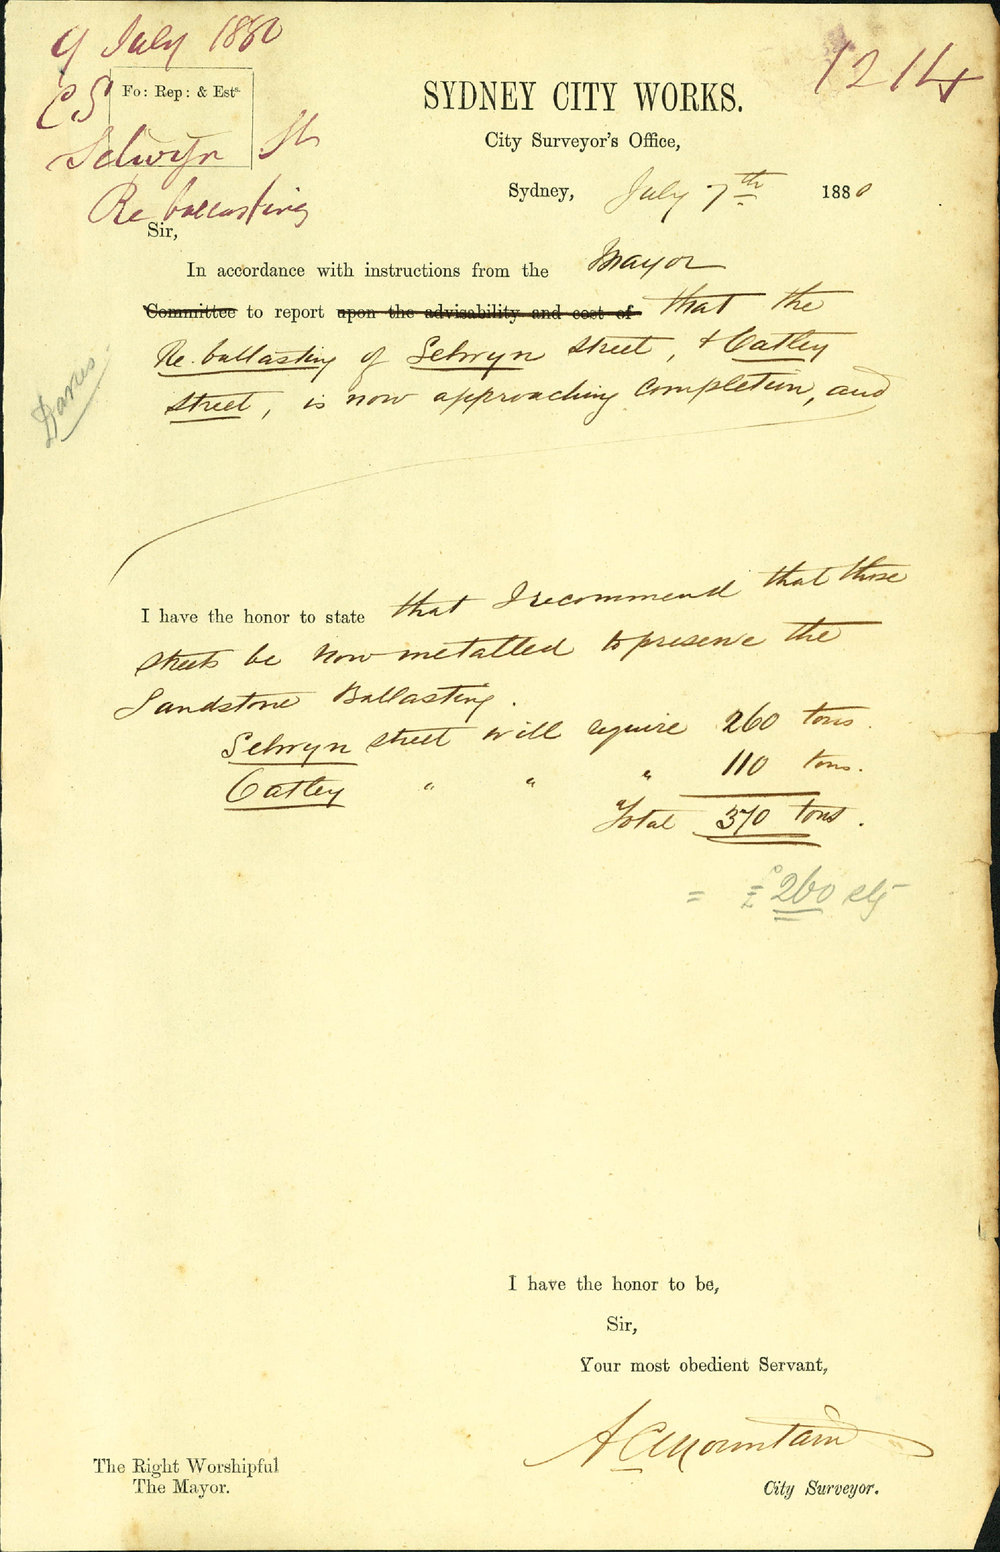 9 July 1880
1214
CS
Fo: Rep: & Ests.
SYDNEY CITY WORKS.
City Surveyor's Office,
Selwyn St
Sydney, July 7th 1880
Re ballasting
Sir,
In accordance with instructions from the Mayor
Committee to report upon the advisability and cost of that the
Re.ballasting of Selwyn street, & Oatley
street, is now approaching completion, and
I have the honor to state that I recommend that those
streets be now metalled to preserve the
Sandstone Ballasting.
Selwyn street will require 260 tons.
Oatley " " " 110 tons.
Total 370 tons.
= £260
I have the honor to be,
Sir,
Your most obedient Servant,
A C Mountain
The Right Worshipful
The Mayor.
City Surveyor.